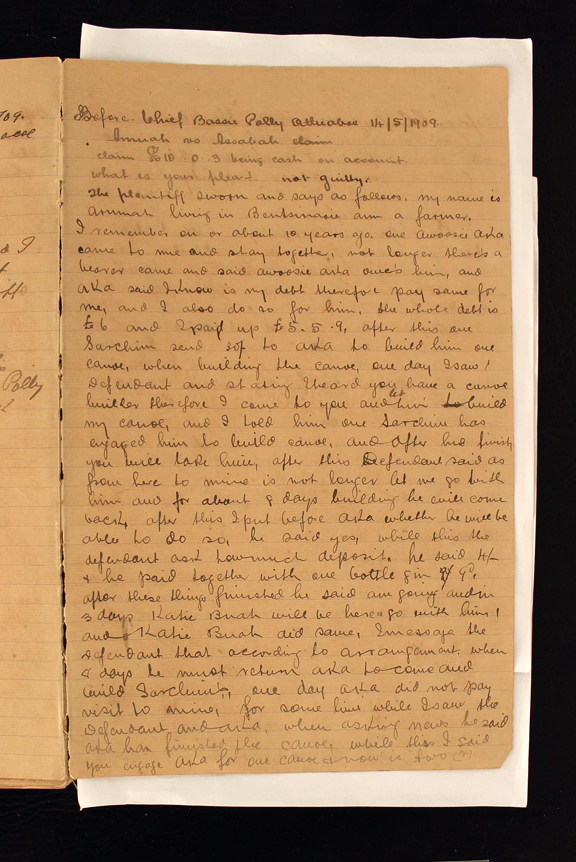 709.
d I
Polly
Before Chief Bassie Polly Attuaboe 14/5/1909
Ammah vs Assabah claim
claim £10. 0. 3 being cash on account.
what is your plea? not guilty.
The plaintiff sworn and says as follows. my name is
Ammah living in Bentsinasie am a farmer.
I remember on or about 10 years go. one Awoosie Aka
came to me and stay together, not longer there's a
bearer came and said awoosie aka owe's him, and
aka said I know is my debt therefore pay same for
me, and I also do so for him. the whole debt is
£6 and I paid up £5. 5. 9, after this one
Sarchim send 30/ to aka to build him one
canoe, when building the canoe, one day I saw
Defendant and stating I heard you have a canoe
builder therefore I come to you and let him to build
my canoe, and I told him one Sarchim has
engaged him to build canoe, and after had finish
you will take him, after this Defendant said as
from here to mine is not longer let me go with
him and for about 8 days building he will come
back, after this I put before aka whether he will be
able to do so, he said yes, while this the
defendant ask how much deposit, he said 4/-
& he paid together with one bottle gin 9d,
after these things finished he said am going and in
3 days Katie Buah will be here & go with him,
and Katie Buah did same, I message the
defendant that according to arrangement when
8 days he must return aka to come and
build Sarchim's, one day aka did not pay
visit to mine, for some time while I saw the
Defendant and aka, when asking news he said
aka has finished the canoe, while this I said
you engage aka for one canoe & now is two